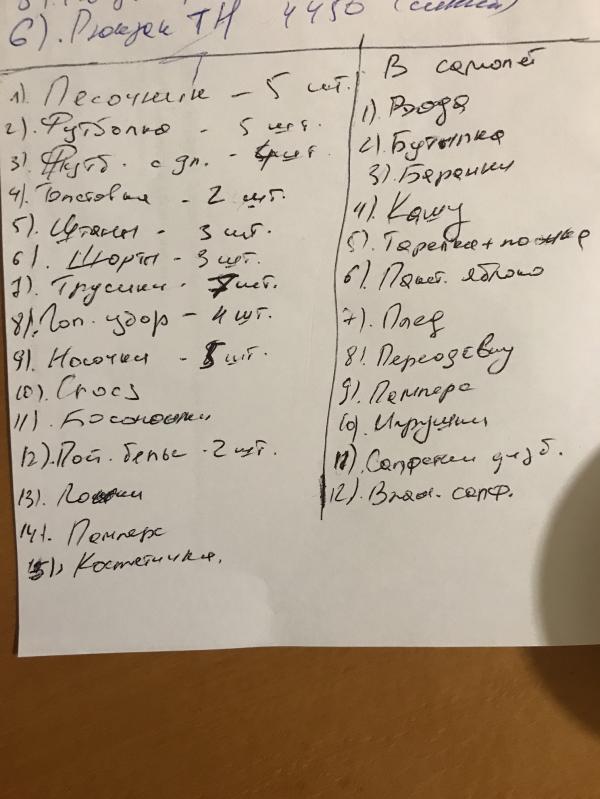 6). Рюкзак ТН 4450 (синий)
1). Песочник - 5 шт.
2). Футболка - 5 шт.
3). Футб. с дл. - 4 шт.
4). Толстовка - 2 шт.
5). Штаны - 3 шт.
6). Шорты - 3 шт.
7). Трусики - 7 шт.
8). Гол. убор - 4 шт.
9). Носочки - 5 шт.
10).
11). Босоножки
12). Пост. белье - 2 шт.
13).
14). Памперс
15). Косметичка.
В самолет
1). Вода
2). Бутылка
3). Баранки
4). Кашу
5). Тарелка + ложка
6). Пакт. яблоко
7). Плед
8). Переодевку
9). Памперс
10). Игрушки
11). Салфетки дез б.
12). Влаж. салф.